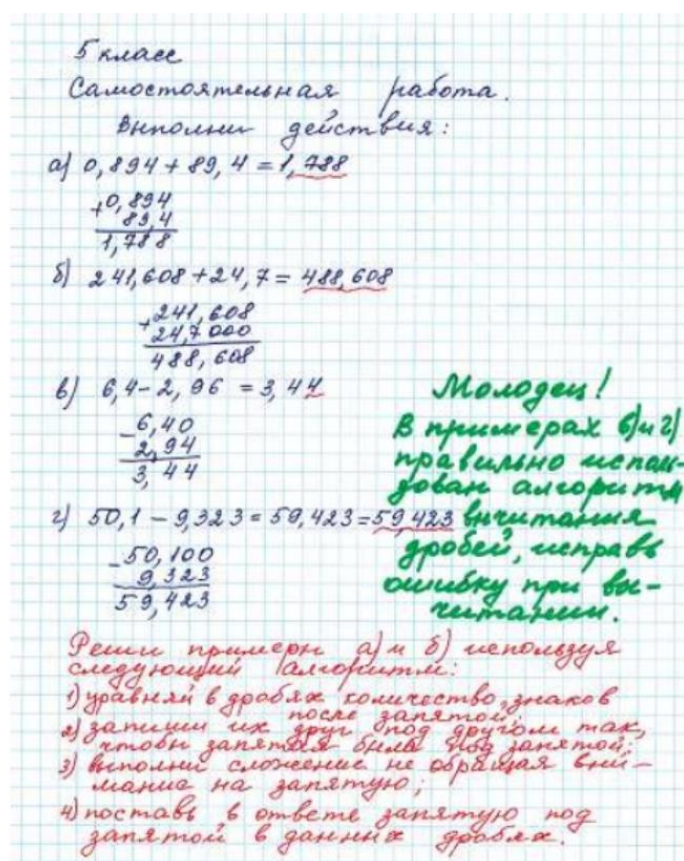 5 класс
Самостоятельная работа.
Выполни действия:
а) 0,894 + 89,4 = 1,788
+0,894
89,4
1,788
б) 241,608 + 24,7 = 488,608
+241,608
24,7000
488,608
в) 6,4 - 2,96 = 3,44
-6,40
2,94
3,44
г) 50,1 - 9,323 = 59,423 = 59,423
-50,100
9,323
59,423
Молодец!
В примерах в) и г)
правильно исполь-
зован алгоритм
вычитания
дробей, исправь
ошибку при вы-
читании.
Реши примеры а) и б) используя
следующий алгоритм:
1) уравняй в дробях количество знаков
после запятой;
2) запиши их друг под другом так,
чтобы запятая была под запятой;
3) выполни сложение не обращая вни-
мание на запятую;
4) поставь в ответе запятую под
запятой в данных дробях.